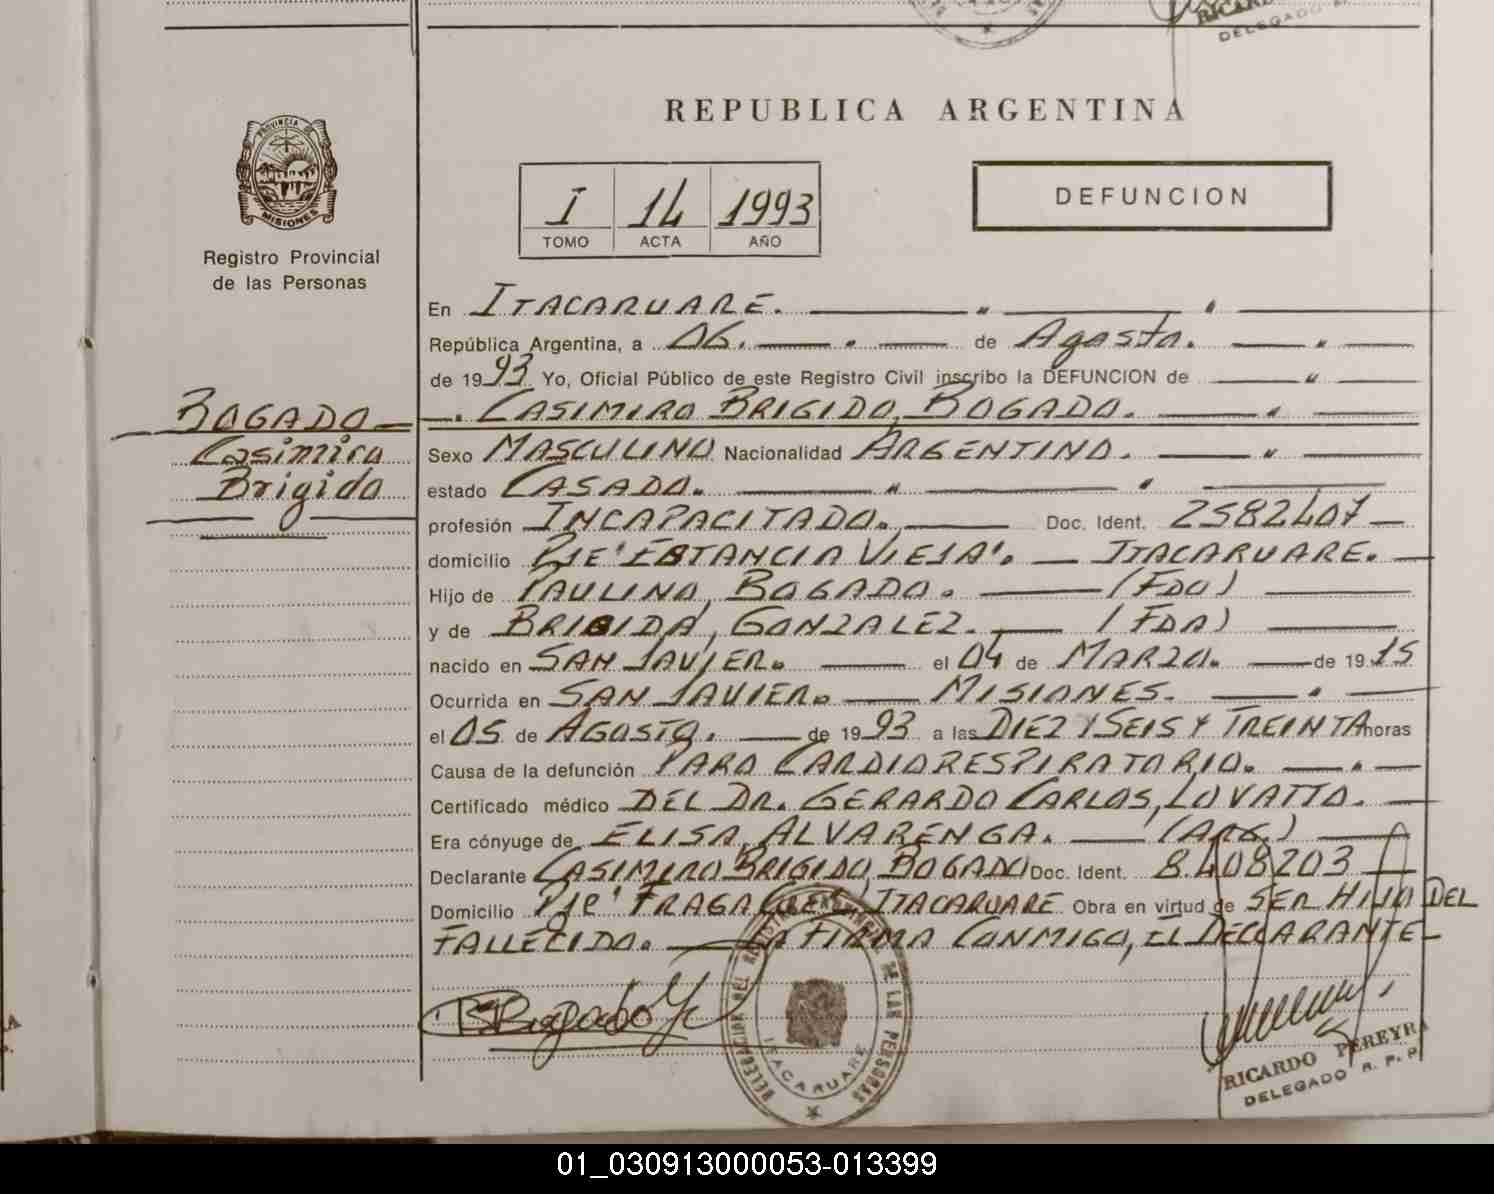 REPUBLICA ARGENTINA
PROVINCIA DE
MISIONES
Registro Provincial
de las Personas
I 14 1993
TOMO ACTA AÑO
DEFUNCION
En ITACARUARE.
República Argentina, a 06. de Agosto.
de 1993 Yo, Oficial Público de este Registro Civil inscribo la DEFUNCION de
BOGADO
Casimiro
Brigido
CASIMIRO BRIGIDO, BOGADO.
Sexo MASCULINO Nacionalidad ARGENTINO.
estado CASADO.
profesión INCAPACITADO. Doc. Ident. 2582407
domicilio PJE "ESTANCIA VIEJA". ITACARUARE.
Hijo de PAULINO, BOGADO. (FDO)
y de BRIGIDA, GONZALEZ. (FDA)
nacido en SAN JAVIER. el 04 de MARZO. de 1915
Ocurrida en SAN JAVIER. MISIONES.
el 05 de AGOSTO. de 1993 a las DIEZ Y SEIS Y TREINTA horas
Causa de la defunción PARO CARDIORESPIRATORIO.
Certificado médico DEL DR. GERARDO CARLOS, LOVATTO.
Era cónyuge de ELISA, ALVARENGA. (ARG.)
Declarante CASIMIRO BRIGIDO, BOGADO Doc. Ident. 8.408203
Domicilio PJE FRAGA ITACARUARE Obra en virtud de SER HIJO DEL
FALLECIDO. FIRMA CONMIGO, EL DECLARANTE
Bogado
DELEGACION DEL REGISTRO DE LAS PERSONAS
ITACARUARE
RICARDO PEREYRA
DELEGADO R. P. P.
01_030913000053-013399